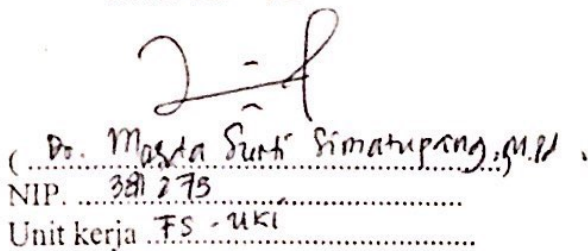 ( Dr. Masda Surti Simatupang, M.Pd.
NIP. 381 275
Unit kerja FS - UKI